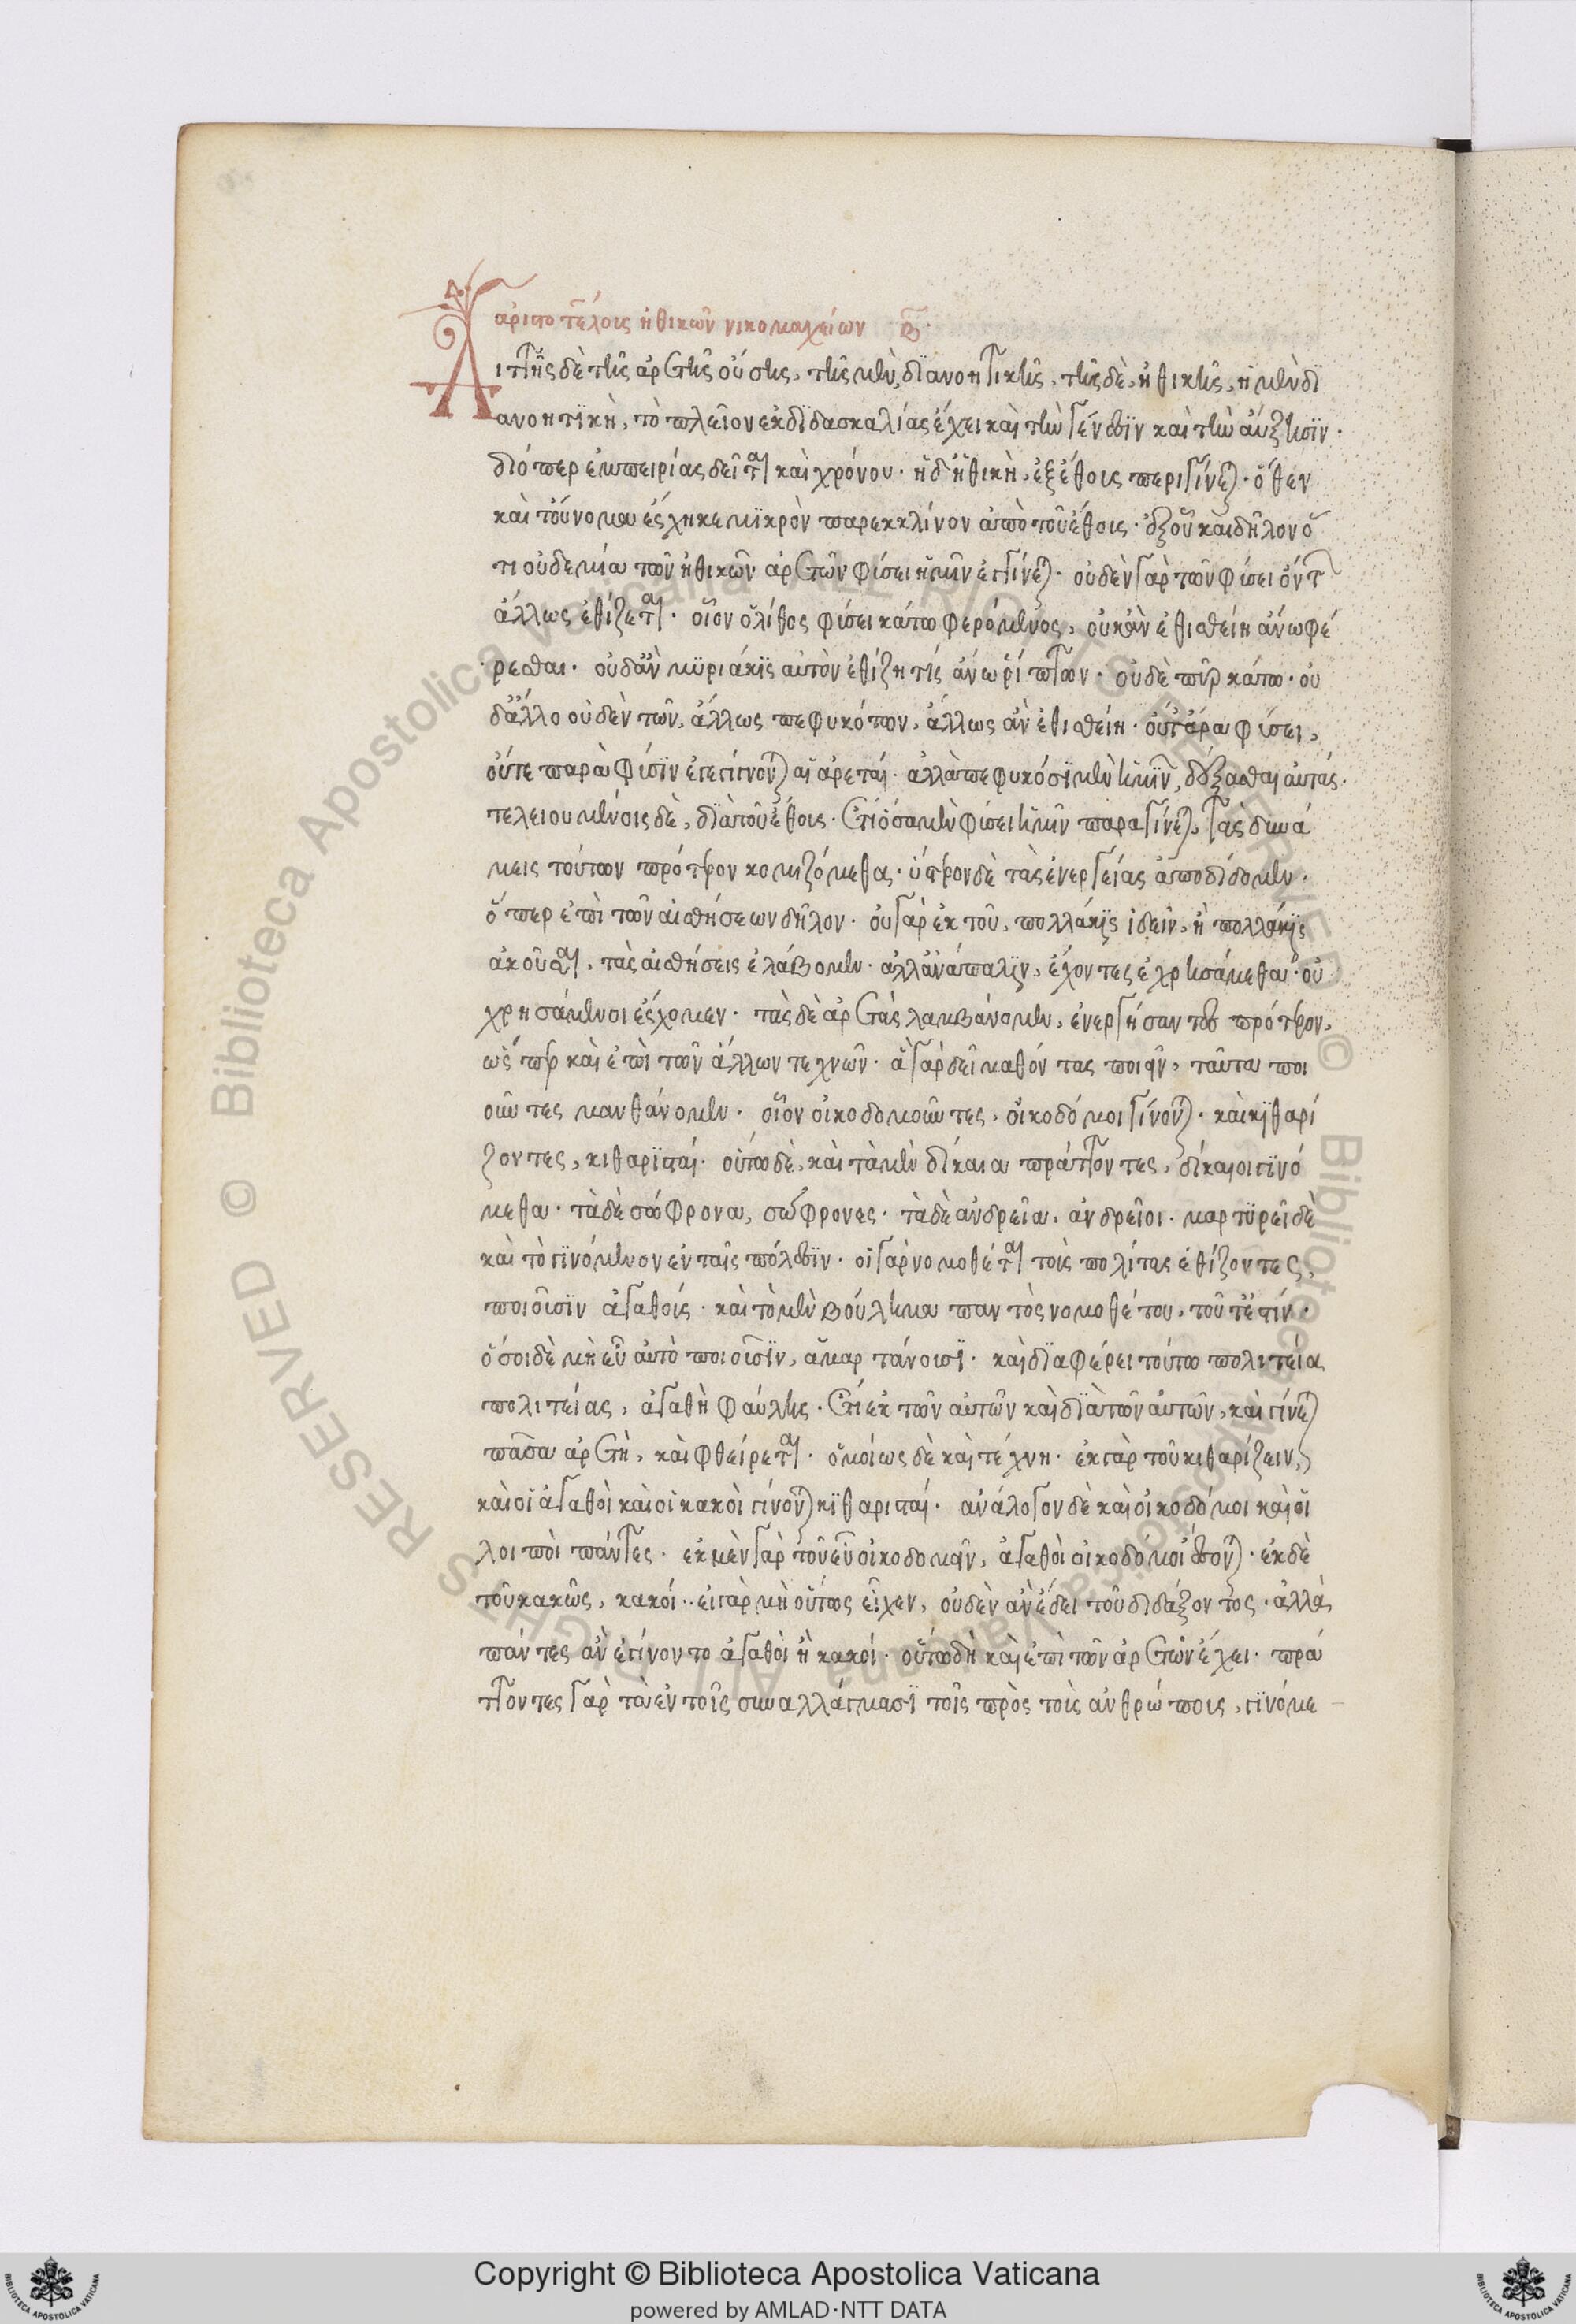 ἀριστοτέλους ἠθικῶν νικομαχείων β̄.
Διττῆς δὲ τῆς ἀρετῆς οὔσης, τῆς μὲν, διανοητικῆς, τῆς δὲ, ἠθικῆς, ἡ μὲν δι
ανοητικὴ, τὸ πλεῖον ἐκ διδασκαλίας ἔχει καὶ τὴν γένεσιν καὶ τὴν αὔξησιν.
διόπερ ἐμπειρίας δεῖται καὶ χρόνου. ἡ δ' ἠθικὴ, ἐξ ἔθους περιγίνεται. ὅθεν
καὶ τοὔνομα ἔσχηκε μικρὸν παρεκκλίνον ἀπὸ τοῦ ἔθους. ἐξ οὗ καὶ δῆλον ὅ
τι οὐδεμία τῶν ἠθικῶν ἀρετῶν φύσει ἡμῖν ἐγγίνεται. οὐδὲν γὰρ τῶν φύσει ὄντων
ἄλλως ἐθίζεται. οἷον ὁ λίθος φύσει κάτω φερόμενος, οὐκ ἂν ἐθισθείη ἄνω φέ
ρεσθαι. οὐδ' ἂν μυριάκις αὐτὸν ἐθίζη τίς ἄνω ῥίπτων. οὐδὲ πῦρ κάτω. οὐ
δ' ἄλλο οὐδὲν τῶν, ἄλλως πεφυκότων, ἄλλως ἂν ἐθισθείη. οὔτ' ἄρα φύσει,
οὔτε παρὰ φύσιν ἐγγίγνονται αἱ ἀρεταί. ἀλλὰ πεφυκόσι μὲν ἡμῖν, δέξασθαι αὐτάς.
τελειουμένοις δὲ, διὰ τοῦ ἔθους. ἔτι ὅσα μὲν φύσει ἡμῖν παραγίνεται, τὰς δυνά
μεις τούτων πρότερον κομιζόμεθα. ὕστερον δὲ τὰς ἐνεργείας ἀποδίδομεν.
ὅπερ ἐπὶ τῶν αἰσθήσεων δῆλον. οὐ γὰρ ἐκ τοῦ, πολλάκις ἰδεῖν, ἢ πολλάκις
ἀκοῦσαι, τὰς αἰσθήσεις ἐλάβομεν. ἀλλ' ἀνάπαλιν, ἔχοντες ἐχρησάμεθα. οὐ
χρησάμενοι ἔσχομεν. τὰς δὲ ἀρετὰς λαμβάνομεν, ἐνεργήσαντες πρότερον,
ὥσπερ καὶ ἐπὶ τῶν ἄλλων τεχνῶν. ἃ γὰρ δεῖ μαθόντας ποιεῖν, ταῦτα ποι
οῦντες μανθάνομεν. οἷον οἰκοδομοῦντες, οἰκοδόμοι γίνονται. καὶ κιθαρί
ζοντες, κιθαρισταί. οὕτω δὲ, καὶ τὰ μὲν δίκαια πράττοντες, δίκαιοι γινό
μεθα. τὰ δὲ σώφρονα, σώφρονες. τὰ δὲ ἀνδρεῖα, ἀνδρεῖοι. μαρτυρεῖ δὲ
καὶ τὸ γινόμενον ἐν ταῖς πόλεσιν. οἱ γὰρ νομοθέται τοὺς πολίτας ἐθίζοντες,
ποιοῦσιν ἀγαθούς. καὶ τὸ μὲν βούλημα παντὸς νομοθέτου, τοῦτ' ἔστίν.
ὅσοι δὲ μὴ εὖ αὐτὸ ποιοῦσιν, ἁμαρτάνουσι. καὶ διαφέρει τούτω πολιτεία
πολιτείας, ἀγαθὴ φαύλης. ἔτι ἐκ τῶν αὐτῶν καὶ διὰ τῶν αὐτῶν, καὶ γίνεται
πᾶσα ἀρετὴ, καὶ φθείρεται. ὁμοίως δὲ καὶ τέχνη. ἐκ γὰρ τοῦ κιθαρίζειν,
καὶ οἱ ἀγαθοὶ καὶ οἱ κακοὶ γίνονται κιθαρισταί. ἀνάλογον δὲ καὶ οἰκοδόμοι καὶ οἱ
λοιποὶ πάντες. ἐκ μὲν γὰρ τοῦ εὖ οἰκοδομεῖν, ἀγαθοὶ οἰκοδόμοι ἔσονται. ἐκ δὲ
τοῦ κακῶς, κακοί. εἰ γὰρ μὴ οὕτως εἶχεν, οὐδὲν ἂν ἔδει τοῦ διδάξοντος. ἀλλὰ
πάντες ἂν ἐγίνοντο ἀγαθοὶ ἢ κακοί. οὕτω δὴ καὶ ἐπὶ τῶν ἀρετῶν ἔχει. πρά
ττοντες γὰρ τὰ ἐν τοῖς συναλλάγμασι τοῖς πρὸς τοὺς ἀνθρώπους, γινόμε
© Biblioteca Apostolica Vaticana ALL RIGHTS RESERVED
© Biblioteca Apostolica Vaticana ALL RIGHTS RESERVED
Copyright © Biblioteca Apostolica Vaticana
powered by AMLAD·NTT DATA
BIBLIOTECA APOSTOLICA VATICANA
BIBLIOTECA APOSTOLICA VATICANA